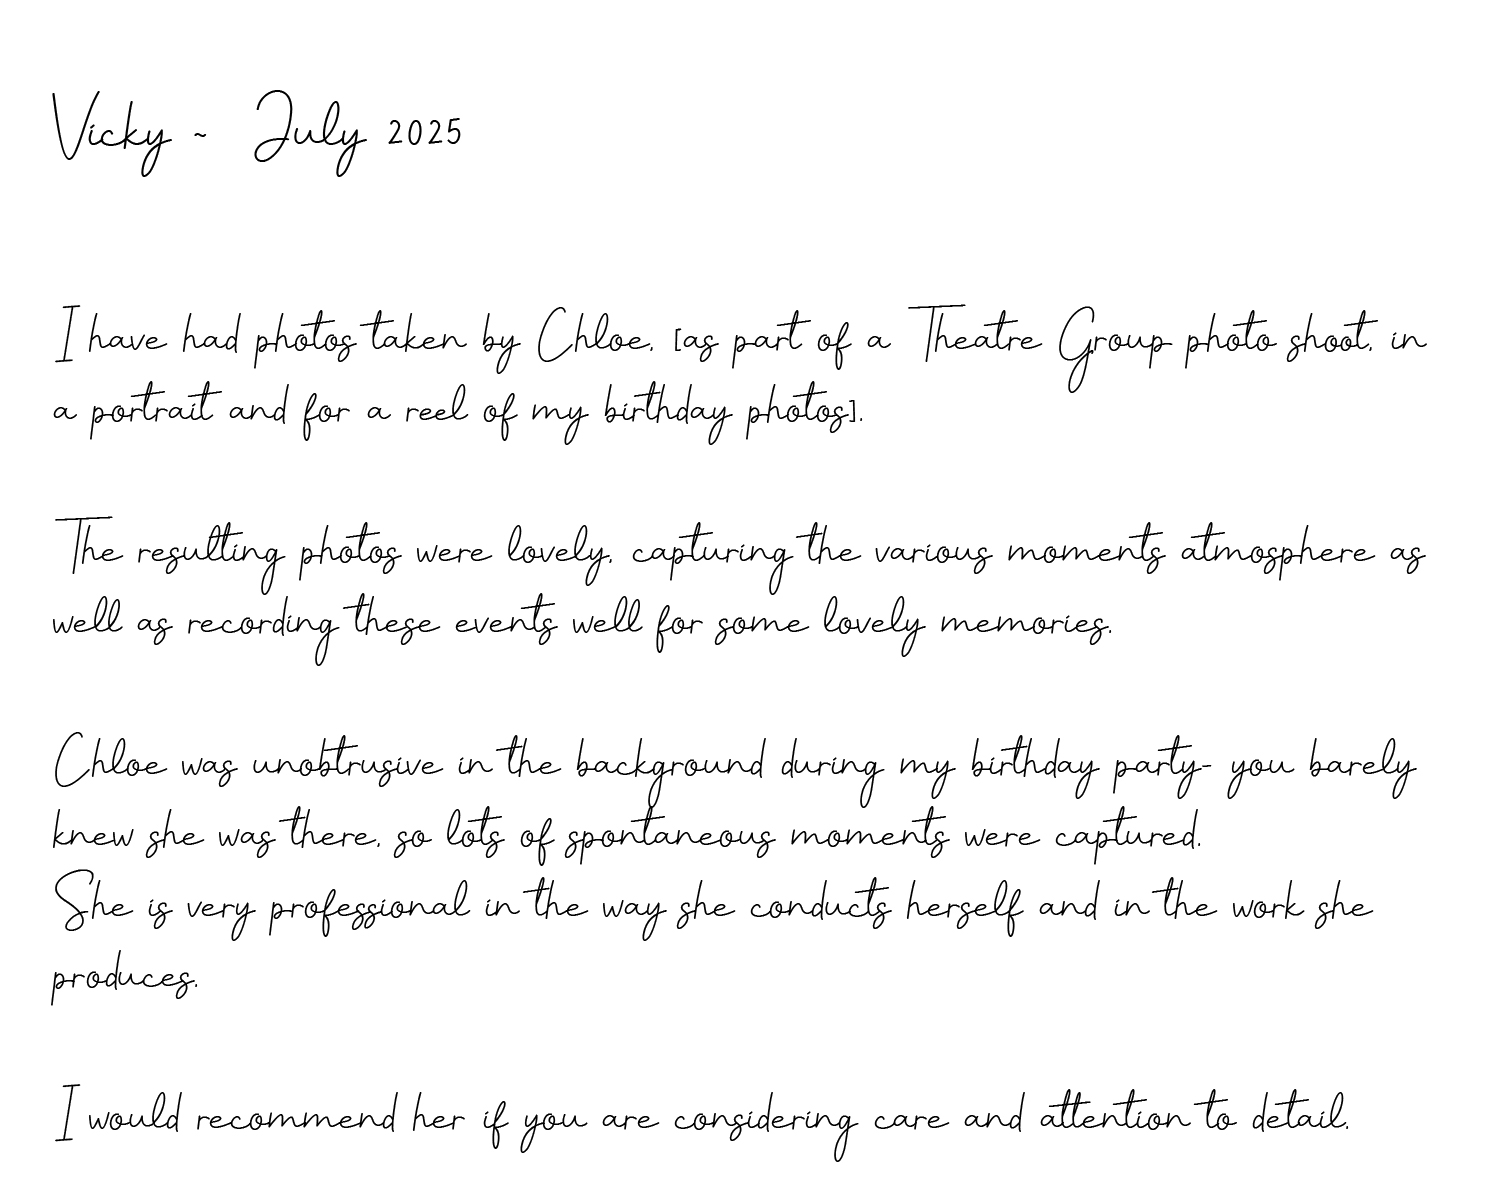 Vicky ~ July 2025
I have had photos taken by Chloe, [as part of a Theatre Group photo shoot, in
a portrait and for a reel of my birthday photos].
The resulting photos were lovely, capturing the various moments atmosphere as
well as recording these events well for some lovely memories.
Chloe was unobtrusive in the background during my birthday party- you barely
knew she was there, so lots of spontaneous moments were captured.
She is very professional in the way she conducts herself and in the work she
produces.
I would recommend her if you are considering care and attention to detail.